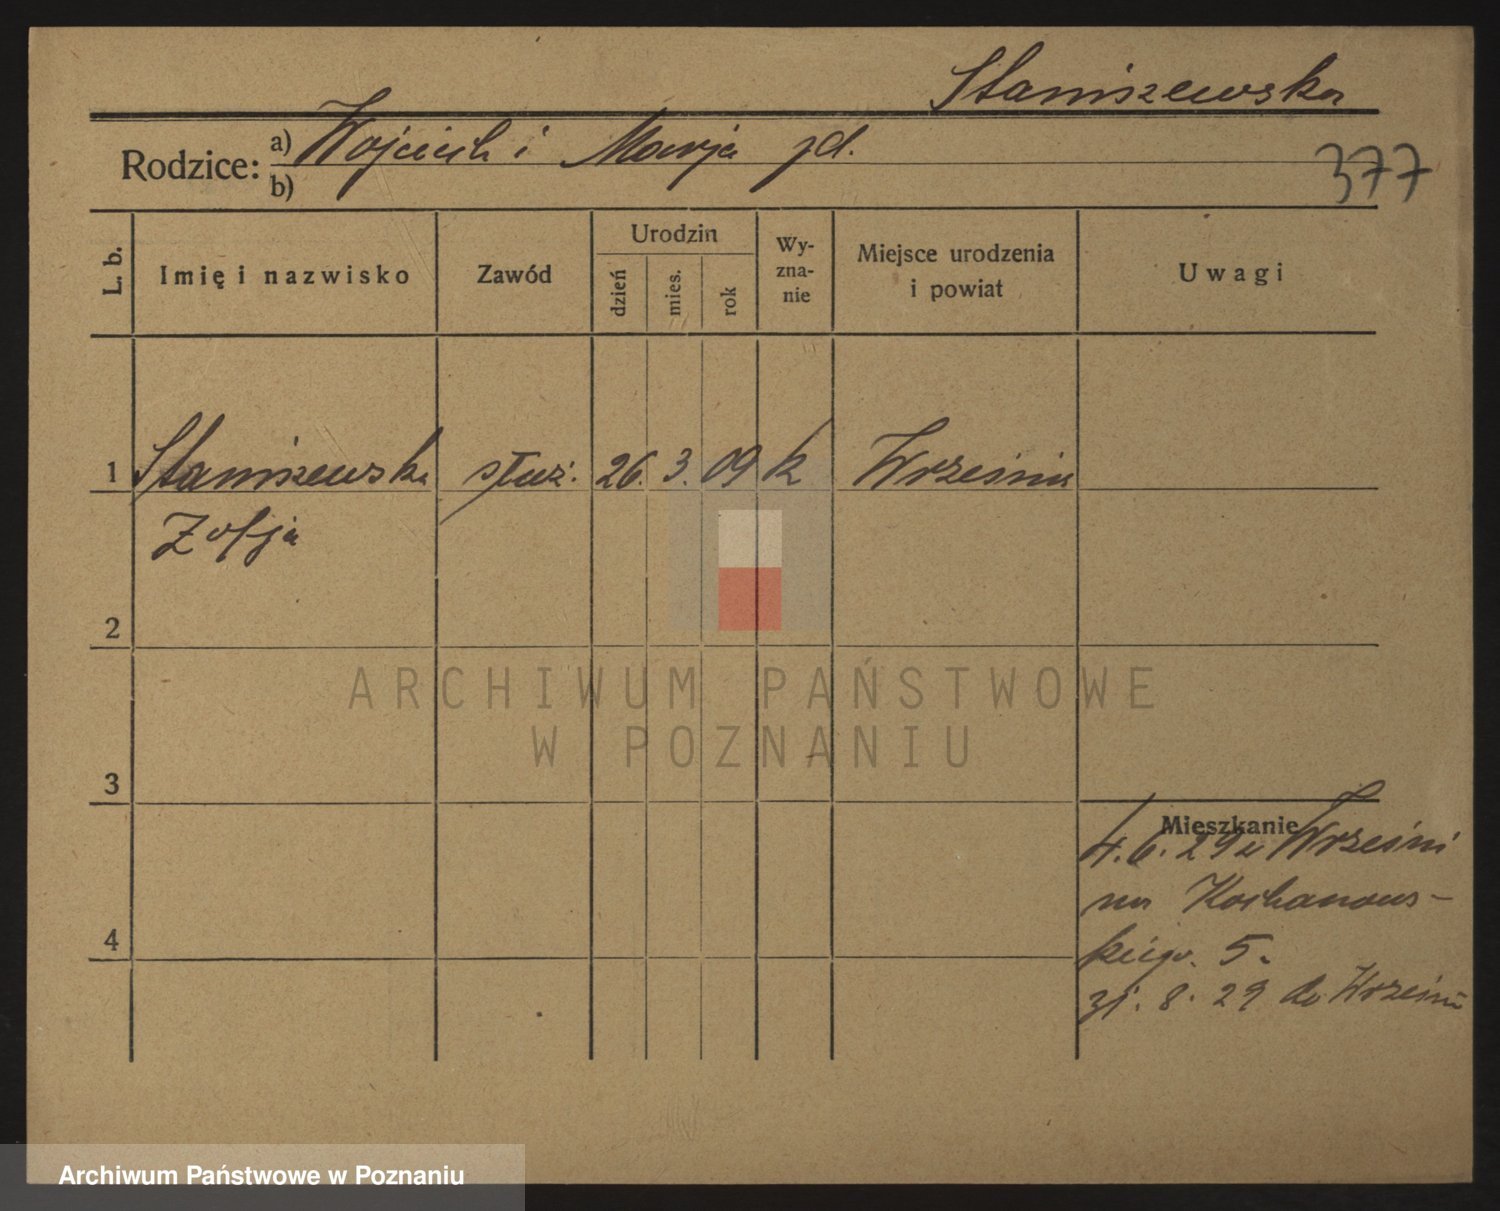 Staniszewska
Rodzice: a) Wojciech i Marja jd.
b)
377
L. b.
Imię i nazwisko
Zawód
Urodzin
dzień
mies.
rok
Wy-
zna-
nie
Miejsce urodzenia
i powiat
Uwagi
1 Staniszewska służ. 26. 3. 09 k Września
Zofja
2
ARCHIWUM PAŃSTWOWE
W POZNANIU
3
Mieszkanie
4. 6. 29 z Wrześni
na Kochanows-
kiego. 5.
4
31. 8. 29 do Wrześni
Archiwum Państwowe w Poznaniu